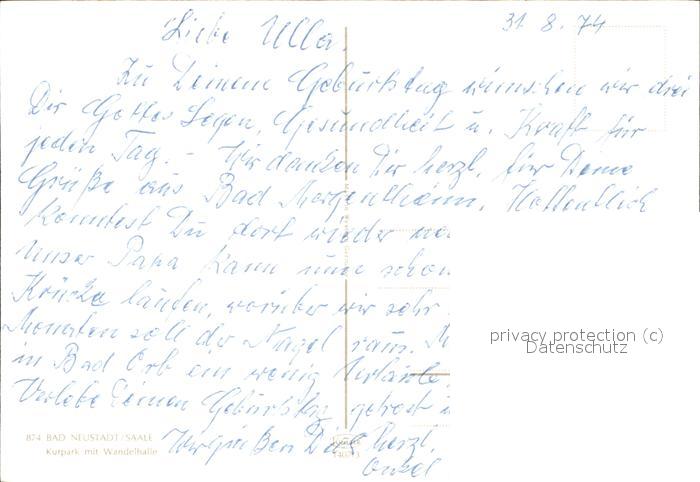 31. 8. 74
Liebe Ulla.
Zu Deinem Geburtstag wünschen wir drei
Dir Gottes Segen, Gesundheit u. Kraft für
jeden Tag. - Wir danken Dir herzl. für Deine
Grüße aus Bad Mergentheim. Hoffentlich
konntest Du dort wieder
Unser Papa kann nun schon
Krücke laufen, worüber wir sehr
Monaten soll der Nagel raus.
in Bad Orb ein wenig
Verlebe Deinen Geburtstag getrost
Wir grüßen Dich herzl.
Onkel
874 BAD NEUSTADT/SAALE
Kurpark mit Wandelhalle
privacy protection (c)
Datenschutz